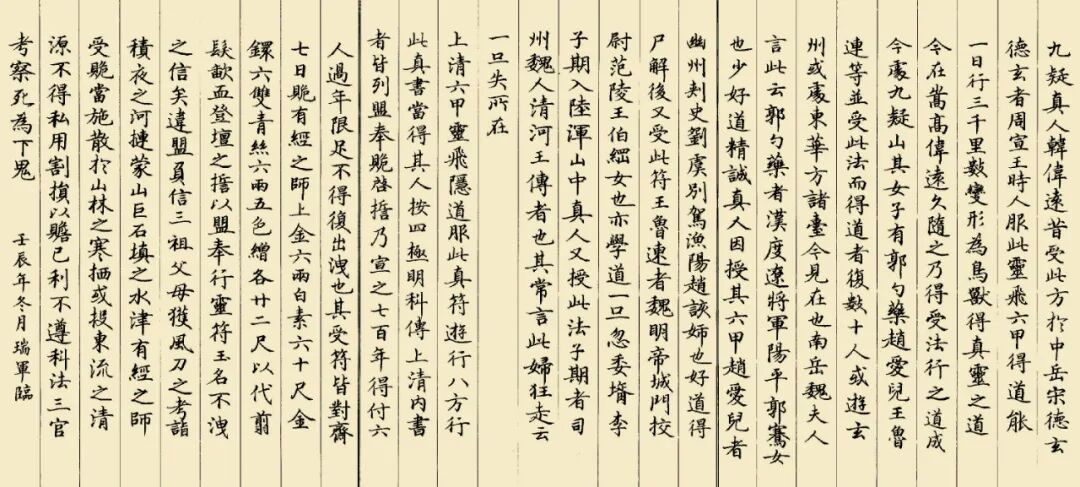 九疑真人韓偉遠昔受此方於中岳宋德玄
德玄者周宣王時人服此靈飛六甲得道能
一日行三千里數變形為鳥獸得真靈之道
今在嵩高偉遠久隨之乃得受法行之道成
今處九疑山其女子有郭勺藥趙愛兒王魯
連等並受此法而得道者復數十人或遊玄
州或處東華方諸臺今見在也南岳魏夫人
言此云郭勺藥者漢度遼將軍陽平郭騫女
也少好道精誠真人因授其六甲趙愛兒者
幽州刾史劉虞別駕漁陽趙該姉也好道得
尸解後又受此符王魯連者魏明帝城門挍
尉范陵王伯綱女也亦學道一旦忽委壻李
子期入陸渾山中真人又授此法子期者司
州魏人清河王傳者也其常言此婦狂走云
一旦失所在
上清六甲靈飛隱道服此真符遊行八方行
此真書當得其人按四極明科傳上清內書
者皆列盟奉貺啓誓乃宣之七百年得付六
人過年限足不得復出洩也其受符皆對齋
七日貺有經之師上金六兩白素六十尺金
鐶六雙青絲六兩五色繒各廿二尺以代翦
髮歃血登壇之誓以盟奉行靈符玉名不洩
之信矣違盟負信三祖父母獲風刀之考詣
積夜之河㨦蒙山巨石填之水津有經之師
受貺當施散於山林之寒栖或投東流之清
源不得私用割損以贍己利不遵科法三官
考察死為下鬼
壬辰年冬月瑞軍臨